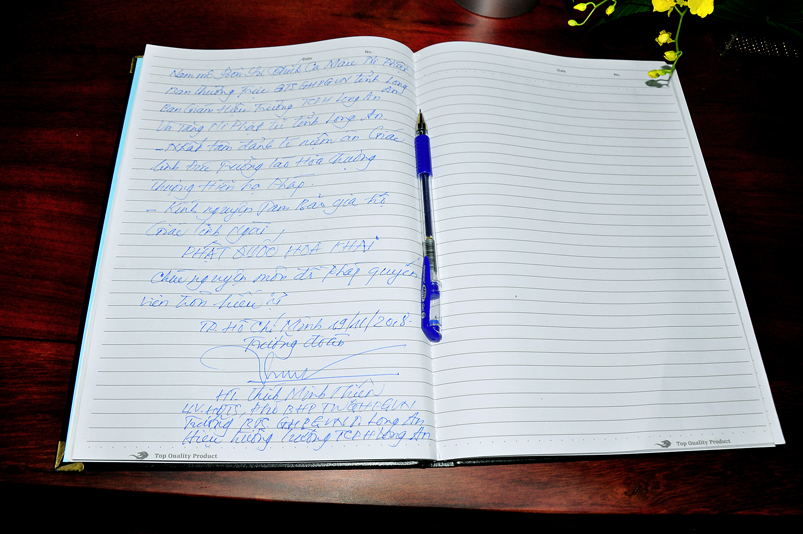 Date No.
Nam mô Bổn Sư Thích Ca Mâu Ni Phật
Ban Thường Trực BTS GHPGVN tỉnh Long An
Ban Giám Hiệu Trường TCPH Long An
Và Tăng Ni Phật tử tỉnh Long An
- Nhất tâm đảnh lễ niệm ân Giác
linh Đức Trưởng lão Hòa thượng
thượng Hiển hạ Pháp.
- Kính nguyện Tam Bảo gia hộ
Giác linh Ngài!
PHẬT QUỐC HOA KHAI
Chúc nguyện môn đồ pháp quyến
viên tròn hiếu sự
TP. Hồ Chí Minh 19/11/2018.
Trưởng đoàn
HT. Thích Minh Thiện
UV.HĐTS, Phó BHP TW GHPGVN
Trưởng BTS GHPGVN T. Long An
Hiệu trưởng Trường TCPH Long An
Top Quality Product
Date No.
Top Quality Product